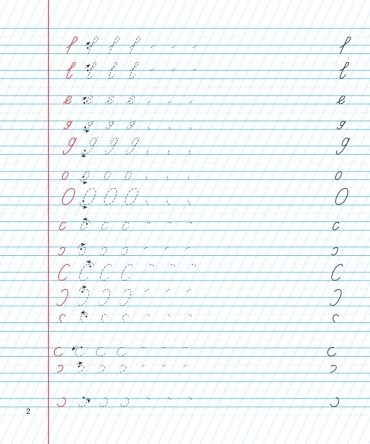 l l l l l
e e e e e
g g g g g
g g g g g
o o o o o
O O O O O
c c c c c
ɔ ɔ ɔ ɔ ɔ
C C C C C
Ɔ Ɔ Ɔ Ɔ Ɔ
c c c c c
ɔ ɔ ɔ ɔ ɔ
2